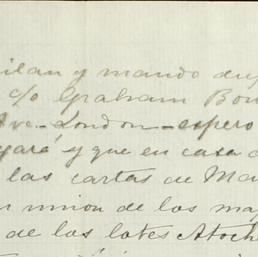 ilan y mando du
c/o Graham Bon
Ave - London - espero
gará y que en casa d
las cartas de Ma
r union de los ma
de los lotes Atoch